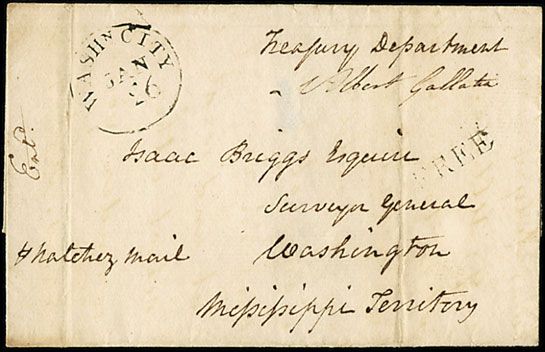 WASHN CITY
JAN
Treasury Department
Albert Gallatin
FREE
Isaac Briggs Esquire
Surveyor General
Washington
Missisippi Territory
Natchez mail